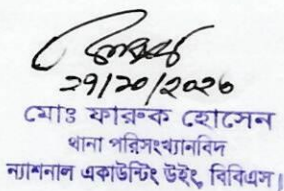 মোঃ ফারুক হোসেন
থানা পরিসংখ্যানবিদ
ন্যাশনাল একাউন্টিং উইং, বিবিএস।